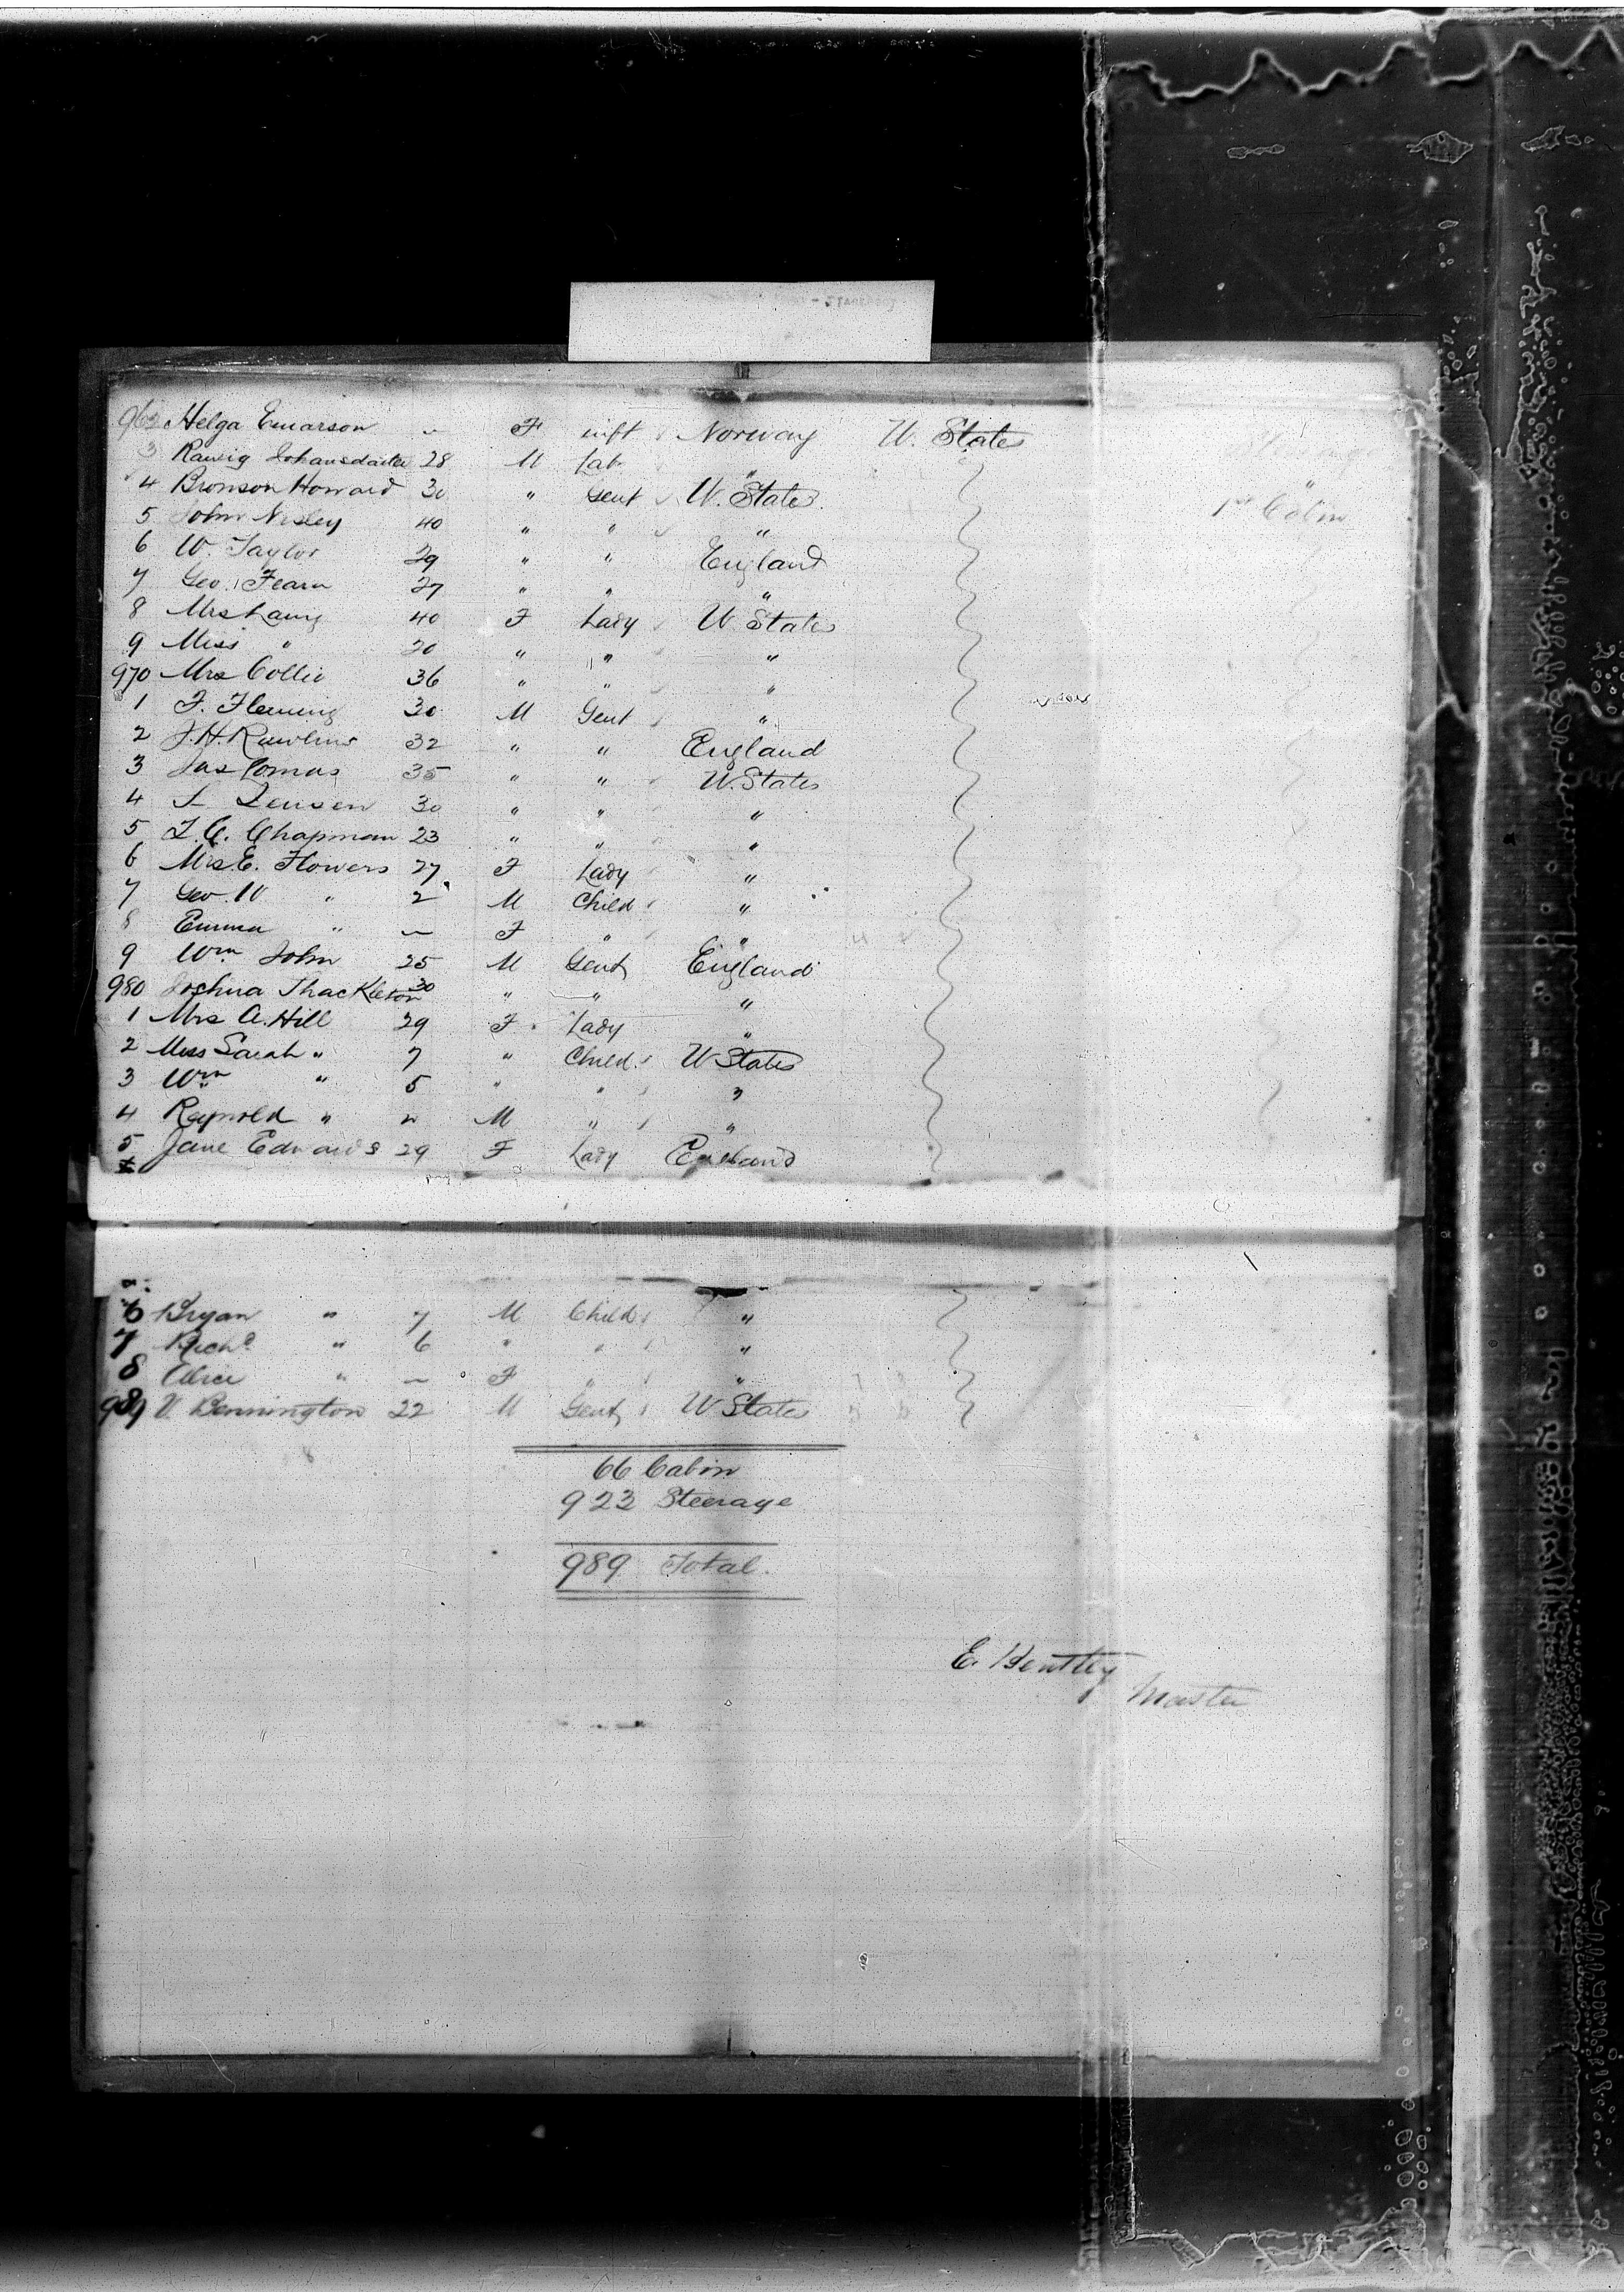 962 Helga Emarson — F inft Norway U. States Steerage
3 Rawig Johansdatter 28 M Lab " "
4 Bronson Howard 30 " Gent U. States 1st Cabin
5 John Nisley 40 " " "
6 W. Taylor 29 " " England
7 Geo. Fearn 27 " " "
8 Mrs Lang 40 F Lady U. States
9 Miss " 20 " " "
970 Mrs Collie 36 " " "
1 F. Fleming 30 M Gent "
2 J. H. Rawlins 32 " " England
3 Jas Lomas 35 " " U. States
4 Jensen 30 " " "
5 T. C. Chapman 23 " " "
6 Mrs E. Flowers 27 F Lady "
7 Geo. W " 2 M Child "
8 Emma " — F " "
9 Wm John 25 M Gent England
980 Joshua Thackleton 30 " " "
1 Mrs A. Hill 29 F Lady "
2 Miss Sarah " 7 " Child U States
3 Wm " 5 " " "
4 Reynold " 2 M " "
5 Jane Edwards 29 F Lady England
6 Bryan " 7 M Child "
7 Richd " 6 " " "
8 Alice " — F " "
989 V. Bennington 22 M Gent U States
66 Cabin
923 Steerage
989 Total.
E. Bentley
Master